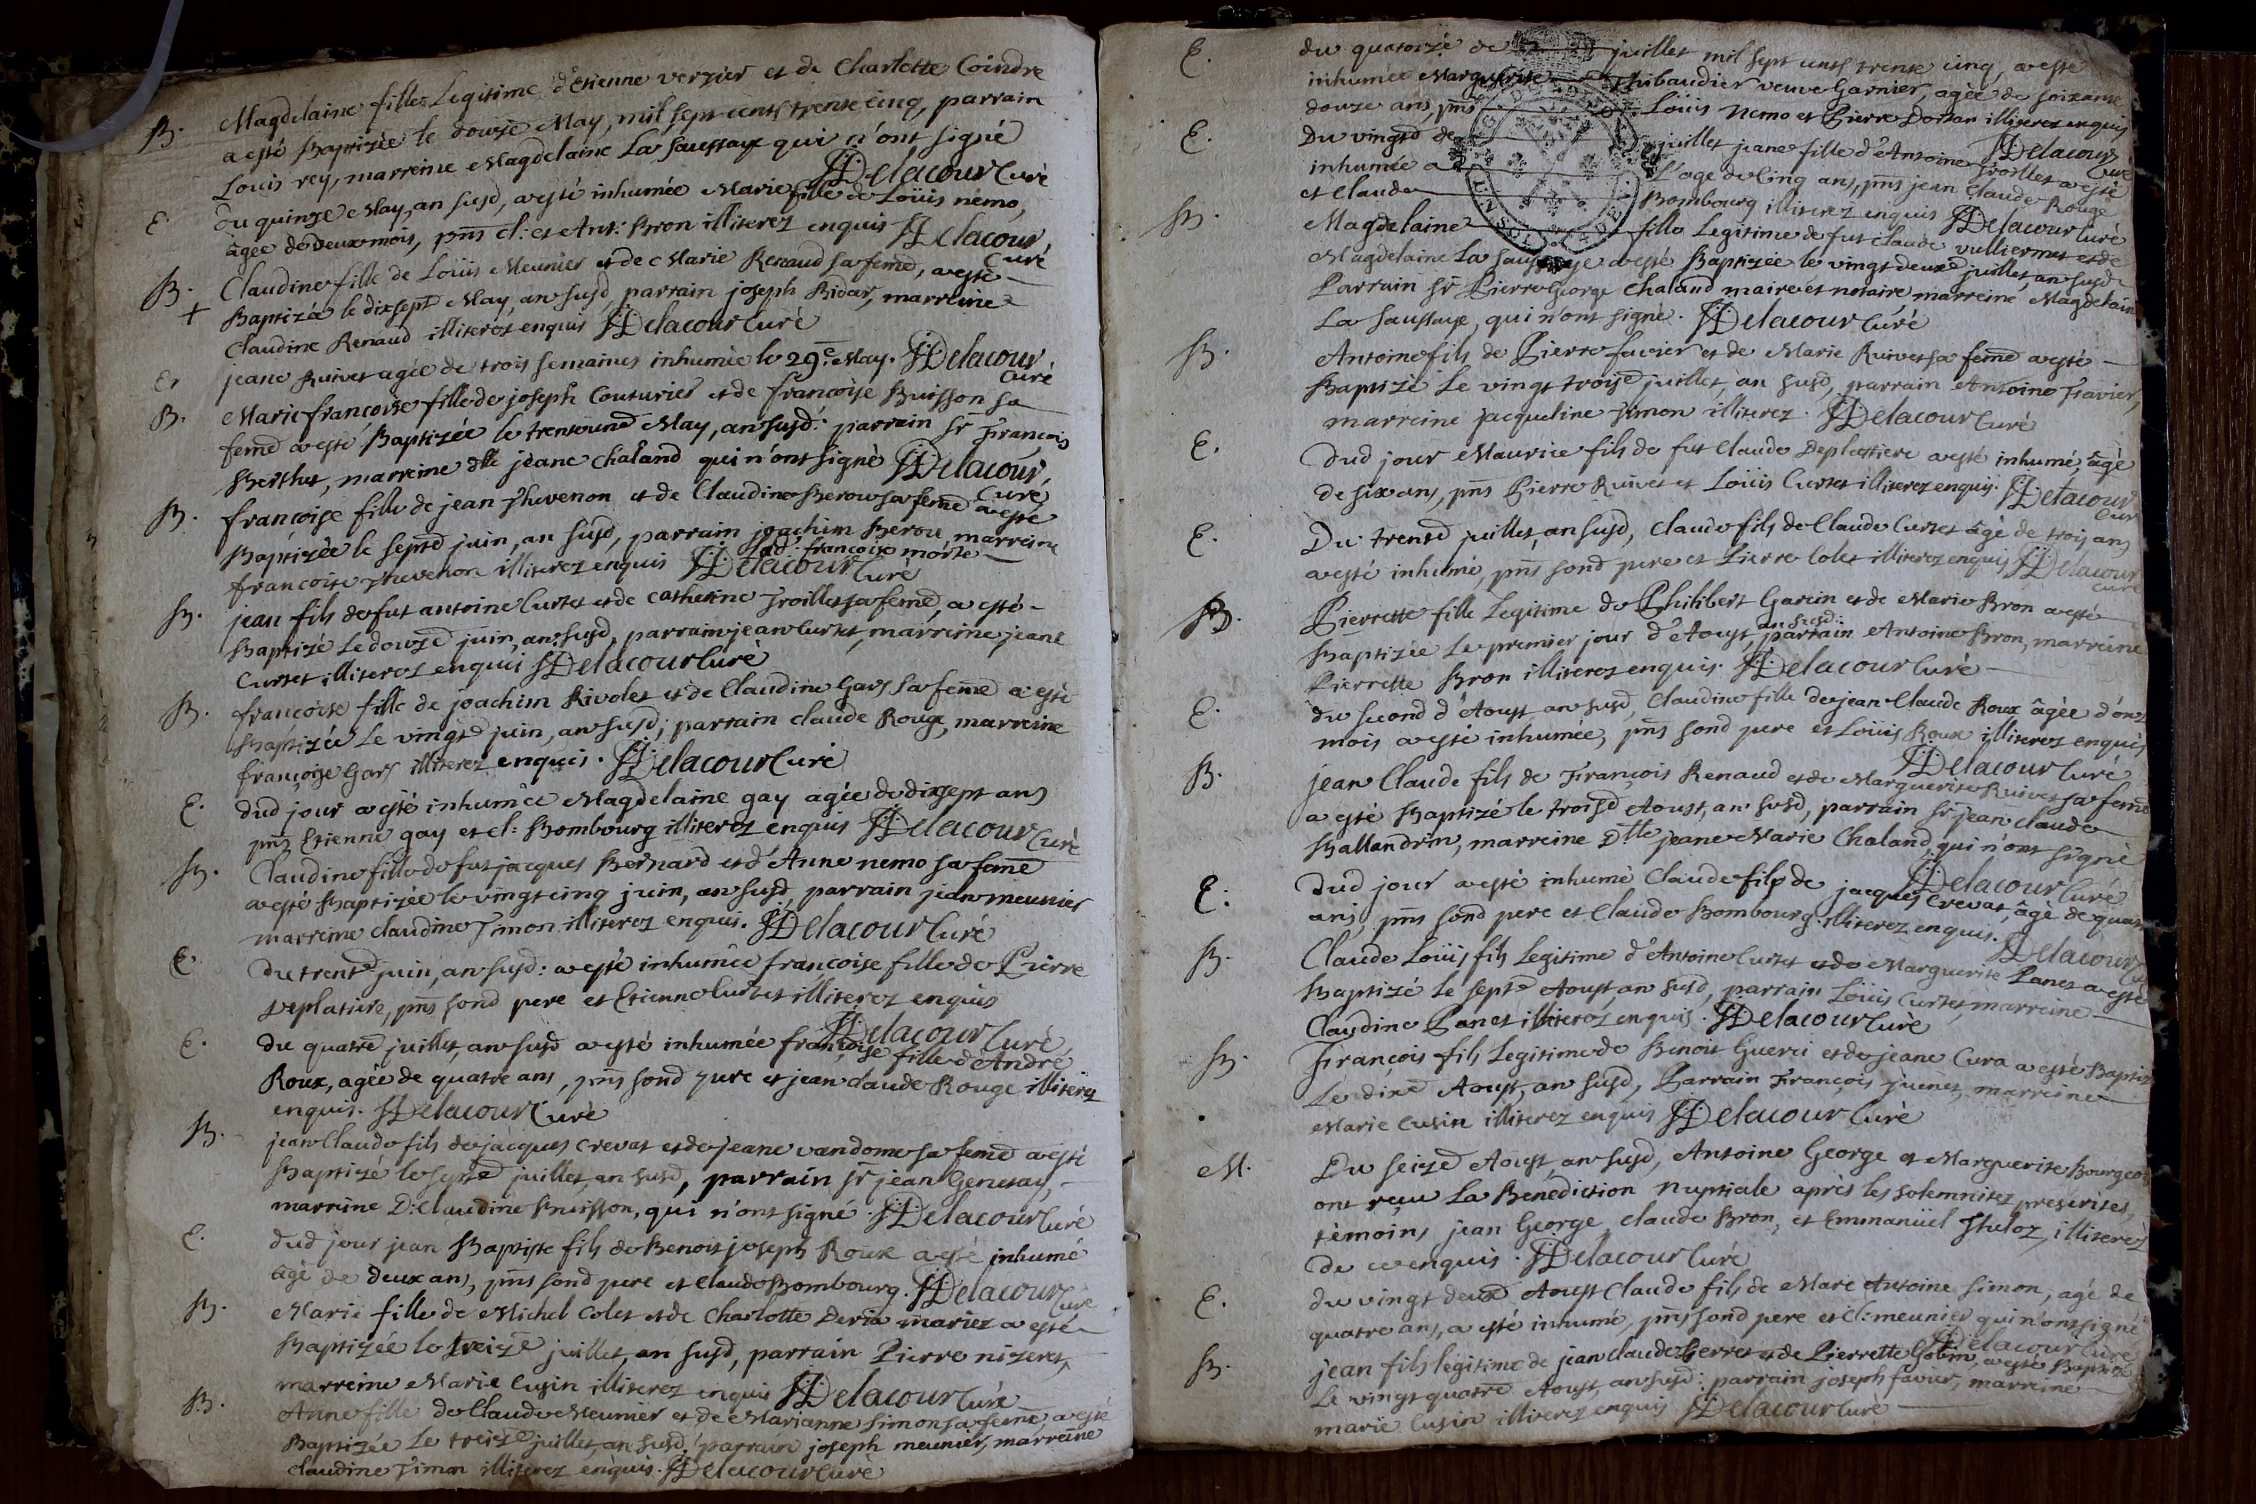 B. Magdelaine fille Legitime d'Etienne verzier et de Charlotte Coindre
a esté Baptizée le douzē May, mil sept cents trente cinq, parrain
Louis rey, marreine Magdelaine La Saussaye qui n'ont signé
Delacour Curé
E. du quinze May, an susd, a esté inhumée Marie fille de Loüis nemo,
âgée de deux mois, pñs cl: et Ant: Bron illiterez enquis Delacour
Curé
B. Claudine fille de Loüis Meunier et de Marie Renaud sa femē, a esté
+ Baptizée le dixsept May, an susd, parrain joseph Bidar, marreine
Claudine Renaud illiterez enquis Delacour Curé
E. jeane Ruivet agée de trois semaines inhumée le 29e May. Delacour
Curé
B. Marie francoise fille de joseph Couturier et de francoise Buisson sa
femē a esté Baptizée le trente unē May, an susd: parrain sr François
Berthet, marreine dlle jeane chaland qui n'ont signé Delacour
Curé
B. françoise fille de jean Thevenon et de Claudine Berou sa femē a esté
Baptizée le septē juin, an susd, parrain joachim Berou, marreine
lad. francoise morte
francoise Thevenon illiterez enquis Delacour Curé
B. jean fils de fut antoine Curtet et de catherine Troillet sa femē, a esté
Baptizé Le douzē juin, an susd, parrain jean Curtet, marreine jeane
Curtet illiterez enquis Delacour Curé
B. francoise fille de joachim Rivolet et de Claudine Gars sa femē a esté
Baptizée Le vingtē juin, an susd; parrain claude Rouge, marreine
françoise Gars illiterez enquis. Delacour Curé
E. dud jour a esté inhumée Magdelaine gay agée de dixsept ans
pñs Etienne gay et cl: Bombourg illiterez enquis Delacour Curé
B. Claudine fille de fut jacques Bernard et d'Anne nemo sa femē
a esté Baptizée le vingt cinq juin, an susd, parrain jean meunier
marreine claudine Simon illiterez enquis. Delacour Curé
E. du trentē juin, an susd: a esté inhumée françoise fille de Pierre
Deplatiere, pñs sond pere et Etienne Curtet illiterez enquis
Delacour Curé
E. du quatrē juillet, an susd a esté inhumée françoise fille d'André
Roux, agée de quatre ans, pñs sond pere et jean claude Rouge illiterez
enquis. Delacour Curé
B. jean Claude fils de jacques Crevat et de jeane vandome sa femē a esté
Baptizé le septē juillet, an susd, parrain sr jean Genetay,
marreine D: Claudine Buisson, qui n'ont signé. Delacour Curé
E. dud jour jean Baptiste fils de Benoit joseph Roux a esté inhumé
âgé de deux ans, pñs sond pere et Claude Bombourg. Delacour
Curé
B. Marie fille de Michel Colet et de Charlotte Deria mariez a esté
Baptizée le treizē juillet, an susd, parrain Pierre nizeret,
marreine Marie Cusin illiterez enquis Delacour Curé
B. Anne fille de Claude Meunier et de Marianne Simon sa femē a esté
Baptizée Le treizē juillet, an susd, parrain joseph meunier, marreine
claudine Simon illiterez enquis. Delacour Curé
E. du quatorzē de juillet mil sept cents trente cinq, a esté
inhumée Marguerite Thibaudier veuve Garnier, agée de soixante
douze ans, pñs Louis Nemo et Pierre Dortan illiterez enquis
Delacour Curé
E. Du vingtē de juillet jeane fille d'Antoine Troillet a esté
inhumée a L'age de Cinq ans, pñs jean Claude Rouge
et Claude Bombourg illiterez enquis Delacour Curé
B. Magdelaine fille Legitime de fut Claude vulliermet et de
Magdelaine La Saussaye a esté Baptizée le vingt deuxē juillet, an susd
Parrain sr Pierre George Chaland maire et notaire marreine Magdelaine
La Saussaye, qui n'ont signé. Delacour Curé
B. Antoine fils de Pierre favier et de Marie Ruivet sa femē a esté
Baptizé Le vingt troisē juillet, an susd, parrain Antoine Favier,
marreine jacqueline Simon illiterez. Delacour Curé
E. Dud jour Maurice fils de fut Claude Deplattiere a esté inhumé, âgé
de six ans, pñs Pierre Ruivet et Loüis Curtet illiterez enquis. Delacour
Curé
E. Du trentē juillet, an susd, Claude fils de Claude Curtet âgé de trois ans
a esté inhumé, pñs sond pere et Pierre Colet illiterez enquis Delacour
Curé
B. Pierrette fille Legitime de Philibert Garin et de Marie Bron a esté
an susd:
Baptizée Le premier jour d'Aoust, parrain Antoine Bron, marreine
Pierrette Bron illiterez enquis. Delacour Curé
E. du second d'Aoust an susd, Claudine fille de jean Claude Roux âgée d'onz
mois a esté inhumée, pñs sond pere et Loüis Roux illiterez enquis
Delacour Curé
B. jean Claude fils de François Renaud et de Marguerite Ruivet sa femē
a esté Baptizé le troisē Aoust, an susd, parrain sr jean claude
Ballandrin, marreine Dlle jeane Marie Chaland, qui n'ont signé
Delacour Curé
E. Dud jour a esté inhumé Claude fils de jacques Crevat, âgé de quatre
ans, pñs sond pere et Claude Bombourg illiterez enquis.
Delacour
B. Claude Loüis fils Legitime d'Antoine Curtet et de Marguerite Panet a esté
Baptizé le septē Aoust, an susd, parrain Loüis Curtet, marreine
Claudine Panet illiterez enquis. Delacour Curé
B. François fils Legitime de Benoit Guerci et de jeane Cura a esté Baptizé
Le dixē Aoust, an susd, Parrain François juenet, marreine
Marie Cusin illiterez enquis Delacour Curé
M. Du seizē Aoust, an susd, Antoine George et Marguerite Bourgeois
ont reçu La Benédiction nuptiale après les solemnitez prescrites,
témoins jean George, claude Bron, et Emmanüel Stuloz, illiterez
de ce enquis. Delacour Curé
E. du vingt deuxē Aoust Claude fils de Marc Antoine Simon, agé de
quatre ans, a esté inhumé, pñs sond pere et cl: meunier qui n'ont signé
Delacour Curé
B. jean fils légitime de jean Claude Berret et de Pierrette Gobin a esté Baptizé
Le vingt quatrē Aoust, an susd: parrain joseph favier, marreine
marie Cusin illiterez enquis Delacour Curé